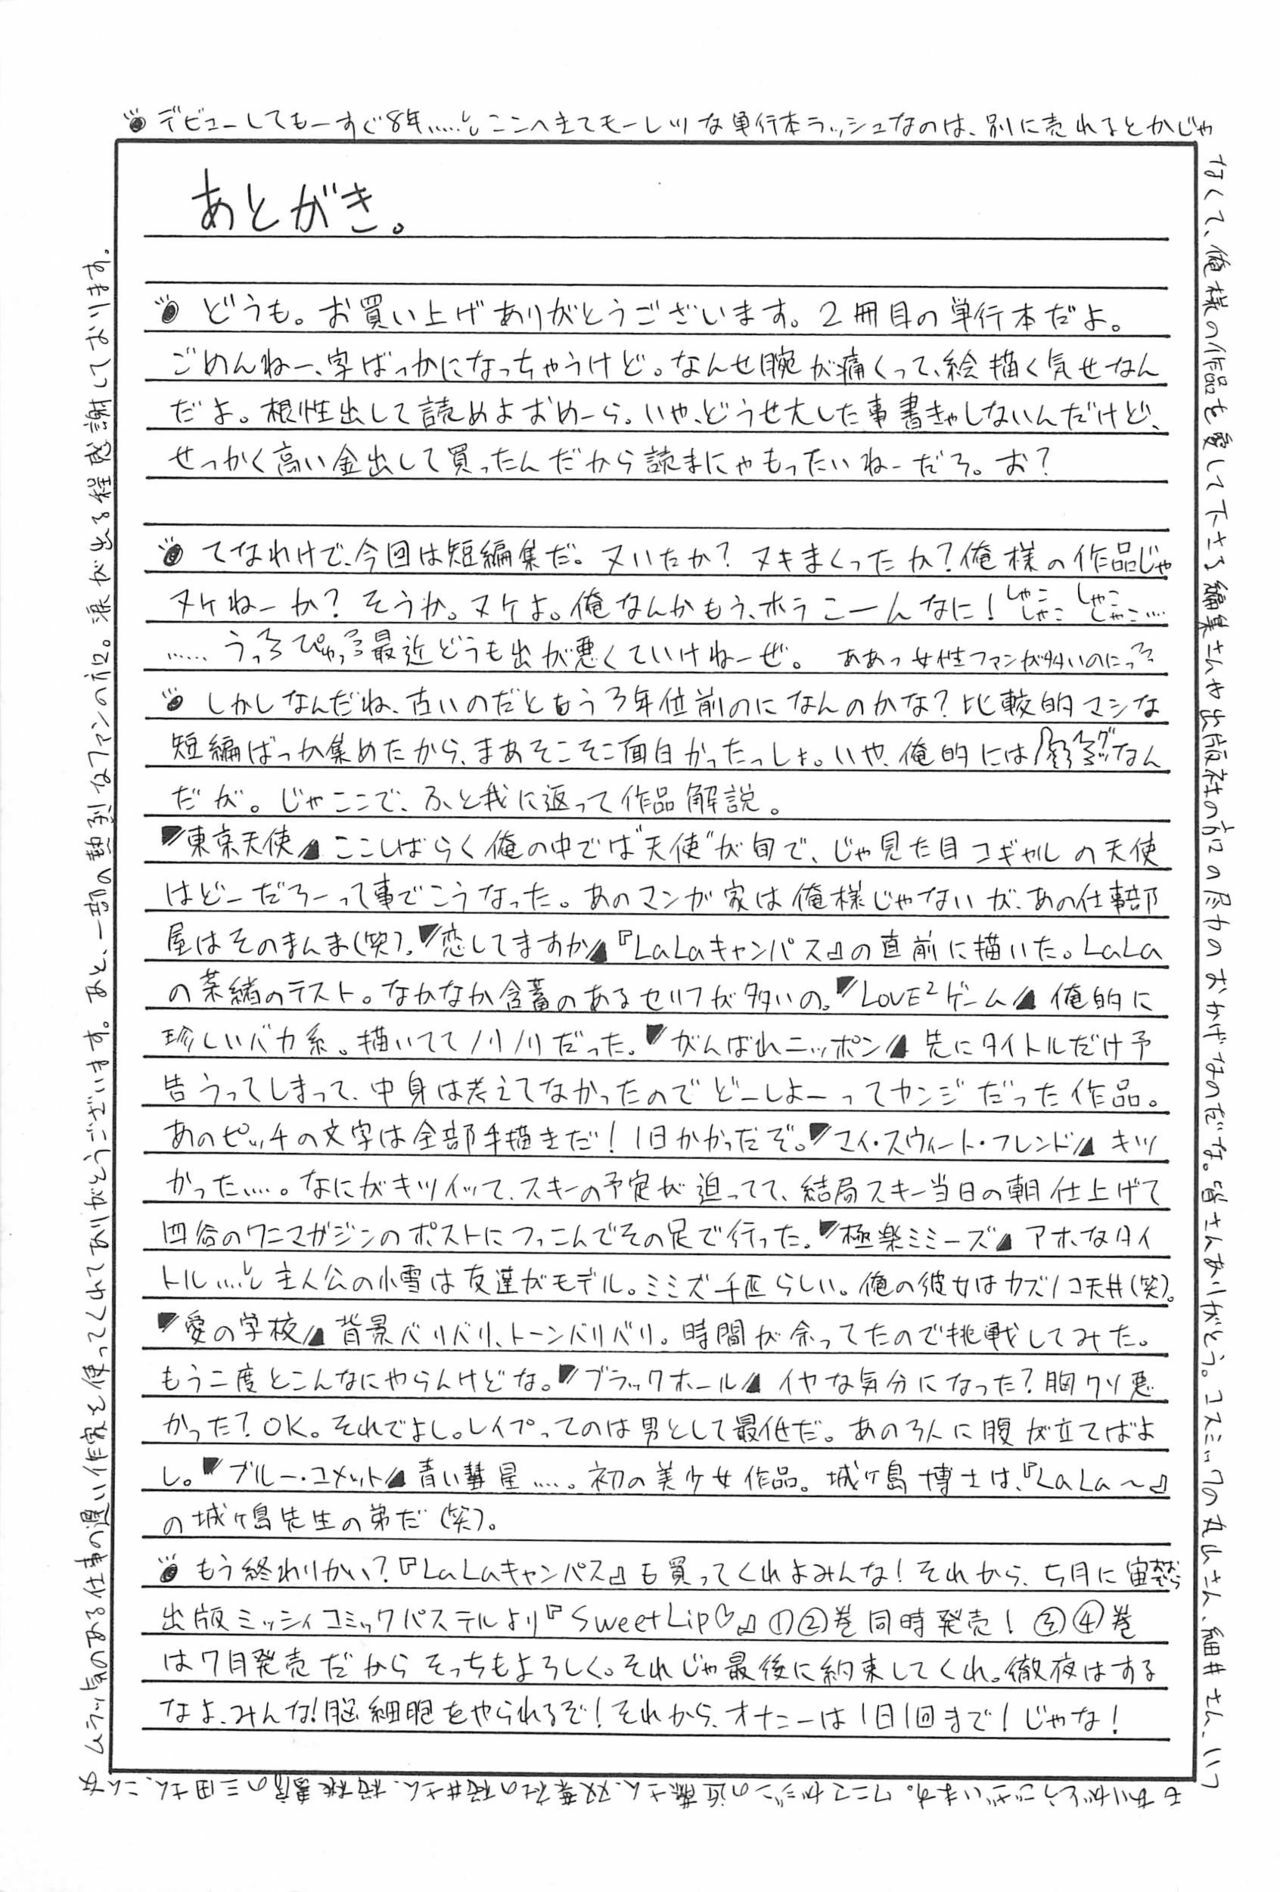 デビューしてもーすぐ8年……。ここへきてモーレツな単行本ラッシュなのは、別に売れるとかじゃ
なくて、俺様の作品を愛して下さる編集さんや出版社の方の尽力のおかげなのだな。皆さんありがとう。コスミックの丸山さん、細井さん、いつ
もありがとうございます。ワニマガジンの近藤さん、双葉社の桜井さん、桜桃書房の三田さん、こんな
ムラッ気のある仕事の遅い作家を使ってくれてありがとうございます。あと、一部の熱烈なファンの方。涙が出る程感謝しております。
あとがき。
どうも。お買い上げありがとうございます。2冊目の単行本だよ。
ごめんねー、字ばっかになっちゃうけど。なんせ腕が痛くって、絵描く気せなん
だよ。根性出して読めよおめーら。いや、どうせ大した事書きゃしないんだけど、
せっかく高い金出して買ったんだから読まにゃもったいねーだろ。お?
てなわけで、今回は短編集だ。ヌいたか?ヌキまくったか?俺様の作品じゃ
ヌケねーか?そうか。ヌケよ。俺なんかもう、ホラこーんなに!しゃこしゃこ しゃこしゃこ…
……うっっぴゅっっ最近どうも出が悪くていけねーぜ。 ああっ女性ファンが多いのにっ
しかしなんだね、古いのだともう3年位前のになんのかな?比較的マシな
短編ばっか集めたから、まあそこそこ面白かったっしょ。いや、俺的にはなん
だが。じゃここで、ふと我に返って作品解説。
東京天使 ここしばらく俺の中では"天使"が旬で、じゃ見た目コギャルの天使
はどーだろーって事でこうなった。あのマンガ家は俺様じゃないが、あの仕事部
屋はそのまんま(笑)。恋してますか『LaLaキャンパス』の直前に描いた。LaLa
の菜緒のテスト。なかなか含蓄のあるセリフが多いの。LOVE²ゲーム 俺的に
珍しいバカ系。描いててノリノリだった。がんばれニッポン 先にタイトルだけ予
告うってしまって、中身は考えてなかったのでどーしよーってカンジだった作品。
あのピッチの文字は全部手描きだ!1日かかったぞ。マイ・スウィート・フレンド キツ
かった…。なにがキツイッて、スキーの予定が迫ってて、結局スキー当日の朝仕上げて
四谷のワニマガジンのポストにつっこんでその足で行った。極楽ミミーズ アホなタイ
トル…。主人公の小雪は友達がモデル。ミミズ千匹らしい。俺の彼女はカズノコ天井(笑)。
愛の学校 背景バリバリ、トーンバリバリ。時間が余ってたので挑戦してみた。
もう二度とこんなにやらんけどな。ブラックホール イヤな気分になった?胸クソ悪
かった?OK。それでよし。レイプってのは男として最低だ。あの3人に腹が立てばよ
し。ブルー・コメット 青い彗星…。初の美少女作品。城ヶ島博士は、『LaLa〜』
の城ヶ島先生の弟だ(笑)。
もう終わりかい?『LaLaキャンパス』も買ってくれよみんな!それから、5月に宙おおぞら
出版ミッシィコミックパステルより『Sweet Lip♡』①②巻同時発売!③④巻
は7月発売だからそっちもよろしく。それじゃ最後に約束してくれ。徹夜はする
なよ、みんな!脳細胞をやられるぞ!それから、オナニーは1日1回まで!じゃな!